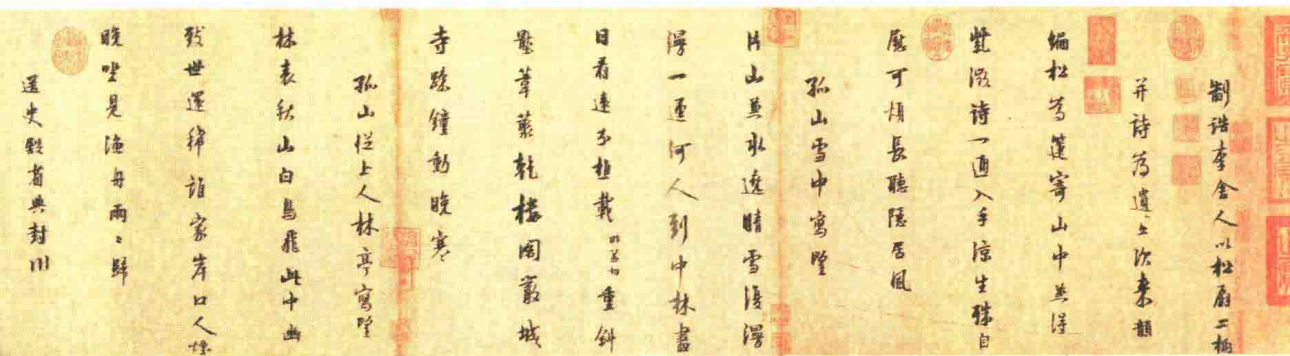 制誥李舍人以松扇二柄
并詩為遺亦次來韻
編松為箑寄山中兼得
紫微詩一通入手涼生殊自
慰可煩長聽隱居風
孤山雪中寫望
片山兼水繞晴雪復漫
漫一徑何人到中林盡
日看遠分樵載重斜
壓葦叢乾樓閣嚴城
寺疎鐘動晚寒
孤山從上人林亭寫望
林表秋山白鳥飛此中幽
致世還稀誰家岸口人煙
晚坐見漁舟兩〻歸
送史殿省典封川